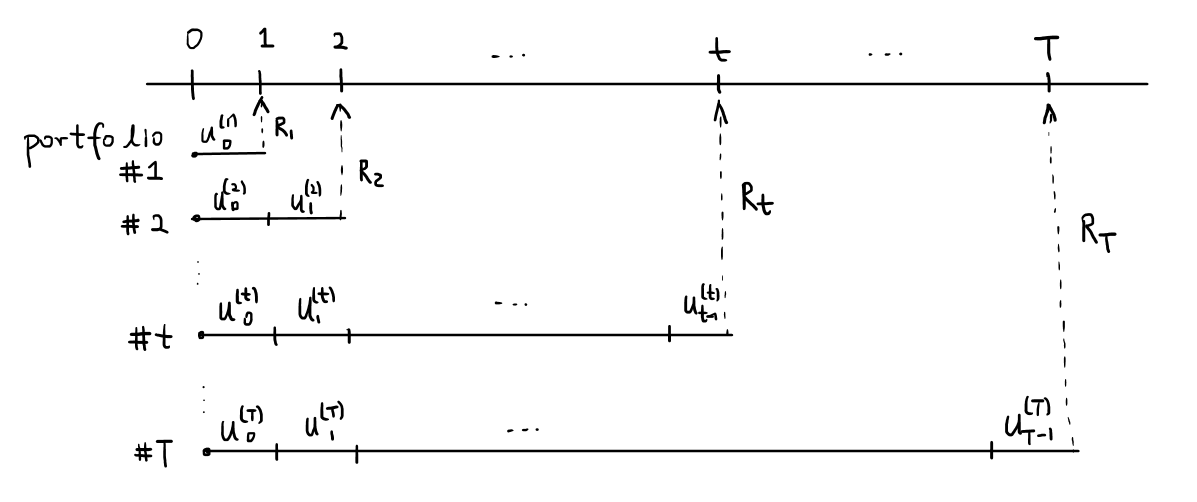 0 1 2 ... t ... T
portfolio #1 u₀⁽¹⁾ R₁
#2 u₀⁽²⁾ u₁⁽²⁾ R₂
#t u₀⁽ᵗ⁾ u₁⁽ᵗ⁾ ... u_{t-1}^{(t)} R_t
#T u₀^{(T)} u₁^{(T)} ... u_{T-1}^{(T)} R_T